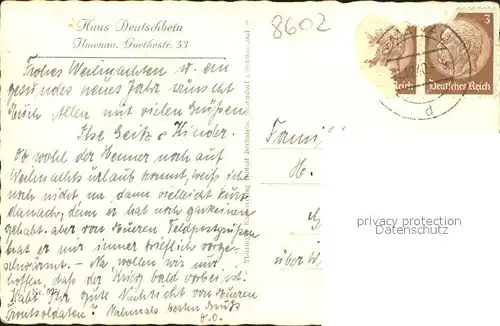 Haus Deutschbein
Ilmenau, Goethestr. 53
8602
3
Deutsches Reich
Reich
d
Frohes Weihnachten u. ein
gesundes neues Jahr wünscht
Euch Allen mit vielen Grüßen
Ilse Seitz & Kinder.
Ob wohl der Henner noch auf
Weihnachtsurlaub kommt, weiß ich
noch nicht na, dann vielleicht kurz
danach, denn er hat noch gar keinen
gehabt. aber von Eueren Feldpostgrüßen
hat er mir immer brieflich vorge-
schwärmt. - Na, wollen wir nur
hoffen, daß der Krieg bald vorbei ist!
Habt Ihr gute Nachricht von Eueren
Frontsoldaten? Nochmals besten Gruß
Fami
H.
über
privacy protection
Datenschutz